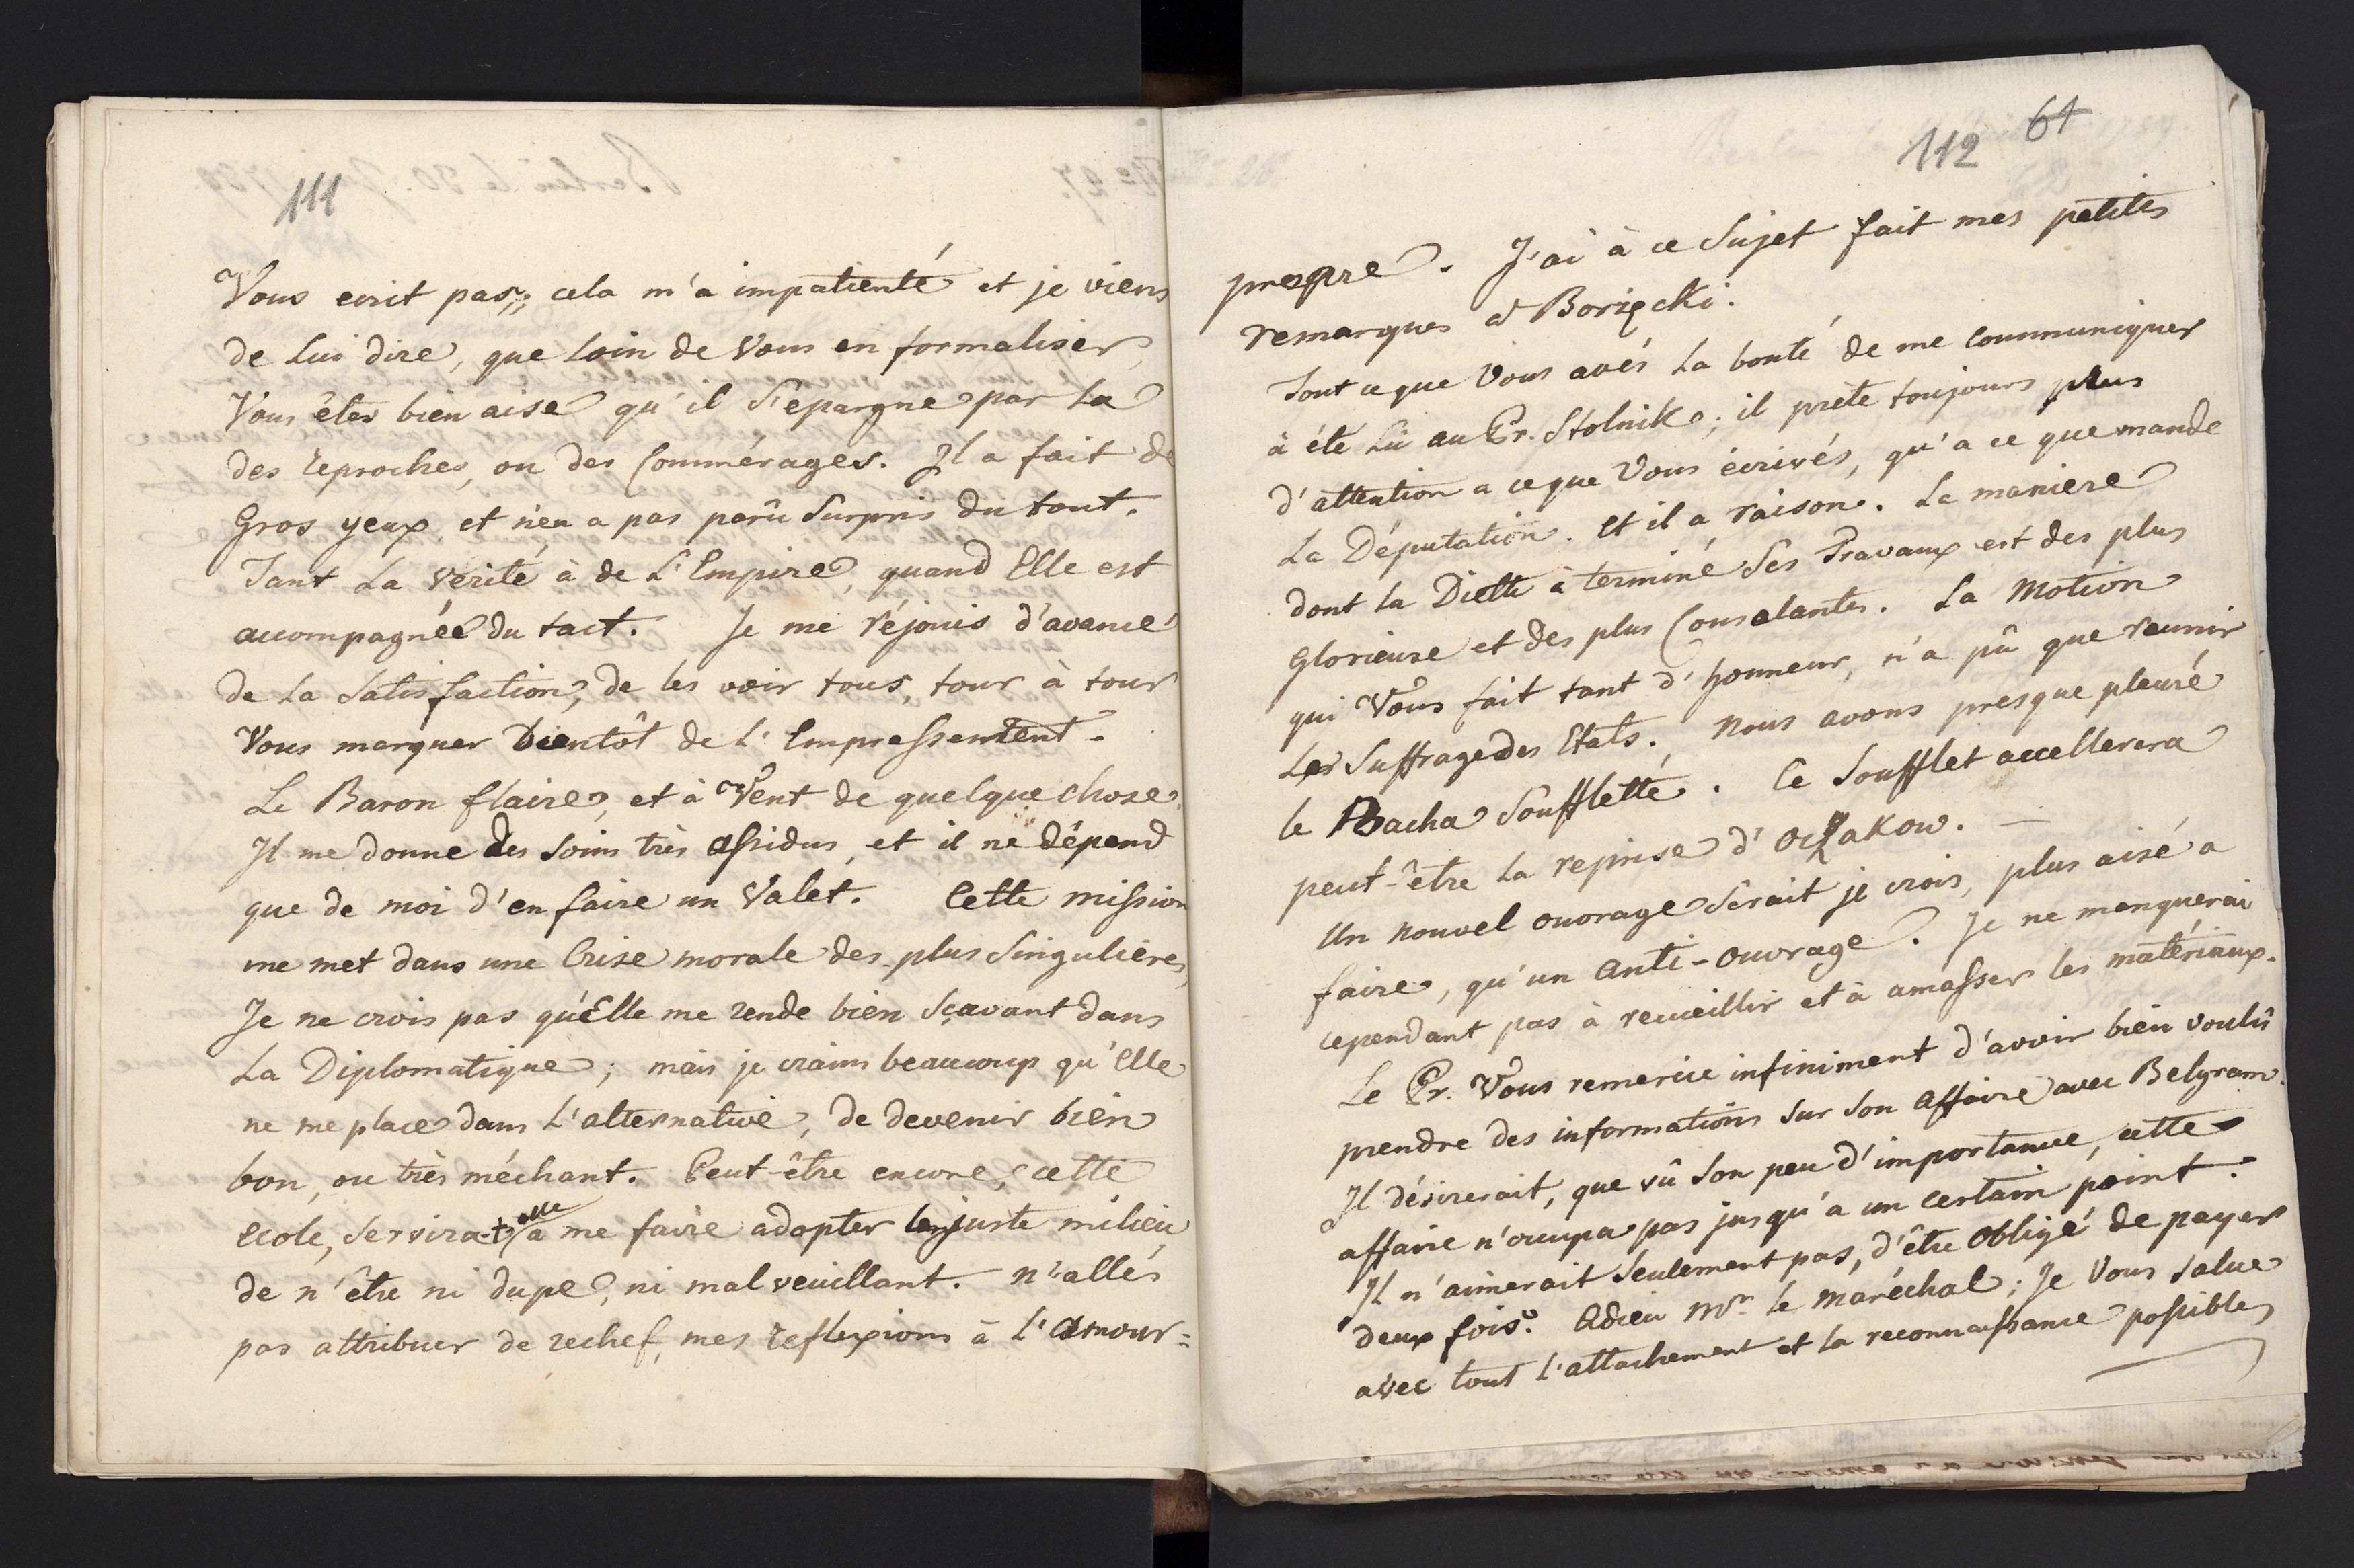 111
Vous ecrit pas; cela m'a impatienté et je viens
de Lui dire, que Loin de Vous en formaliser,
Vous êtes bien aise qu'il S'epargne par La
des reproches, ou des Commérages. Il a fait de
Gros yeux et n'en a pas parû Surpris du tout.
Tant La verité à de L'Empire, quand Elle est
accompagnée du tact. Je me réjouis d'avance
de La Satisfaction, de les voir tous, tour à tour
Vous marquer Bientôt de L'Empressement.
Le Baron flaire, et à Vent de quelque chose.
Il me donne des Soins très assidus, et il ne dépend
que de moi d'en faire un Valet. Cette mission
me met dans une Crise morale des plus Singulières,
Je ne crois pas qu'Elle me rende bien Sçavant dans
La Diplomatique; mais je crains beaucoup qu'Elle
ne me place dans L'alternative, de devenir bien
bon, ou très méchant. Peut-être encore, cette
ecole, Servira-t-elle à me faire adopter le juste milieu
de n'être ni dupe, ni malveuillant. n'allés
pas attribuer de rechef, mes reflexions à L'amour=
112 64
propre. J'ai à ce Sujet fait mes petites
remarques à Borzęcki.
Tout ce que Vous avés La bonté de me communiquer
à été Lu au Pr. Stolnik; il prète toujours plus
d'attention a ce que Vous écrivés, qu'a ce que mande
La Députation. Et il a raison. La maniere
dont la Diette à terminé Ses Travaux est des plus
Glorieuse et des plus Consolantes. La Motion
qui Vous fait tant d'honneur, n'a pû que reunir
Les Suffrage des Etats. Nous avons presque pleuré
le Bacha Souffletté. Ce Soufflet accellerera
peut-être La reprise d'Oczakow. —
Un nouvel ouvrage Serait je crois, plus aisé a
faire, qu'un Anti-Ouvrage. Je ne manquerai
cependant pas à recueillir et à amasser les matériaux.
Le Pr. Vous remercie infiniment d'avoir bien voulû
prendre des informations Sur Son Affaire avec Belgram.
Il désirerait, que vû Son peu d'importance, cette
affaire n'occupa pas jusqu'à un certain point.
Il n'aimerait Seulement pas, d'être Obligé de payer
deux fois. Adieu Mʳ le Maréchal; Je Vous Salue
avec tout L'attachement et La reconnaissance possibles